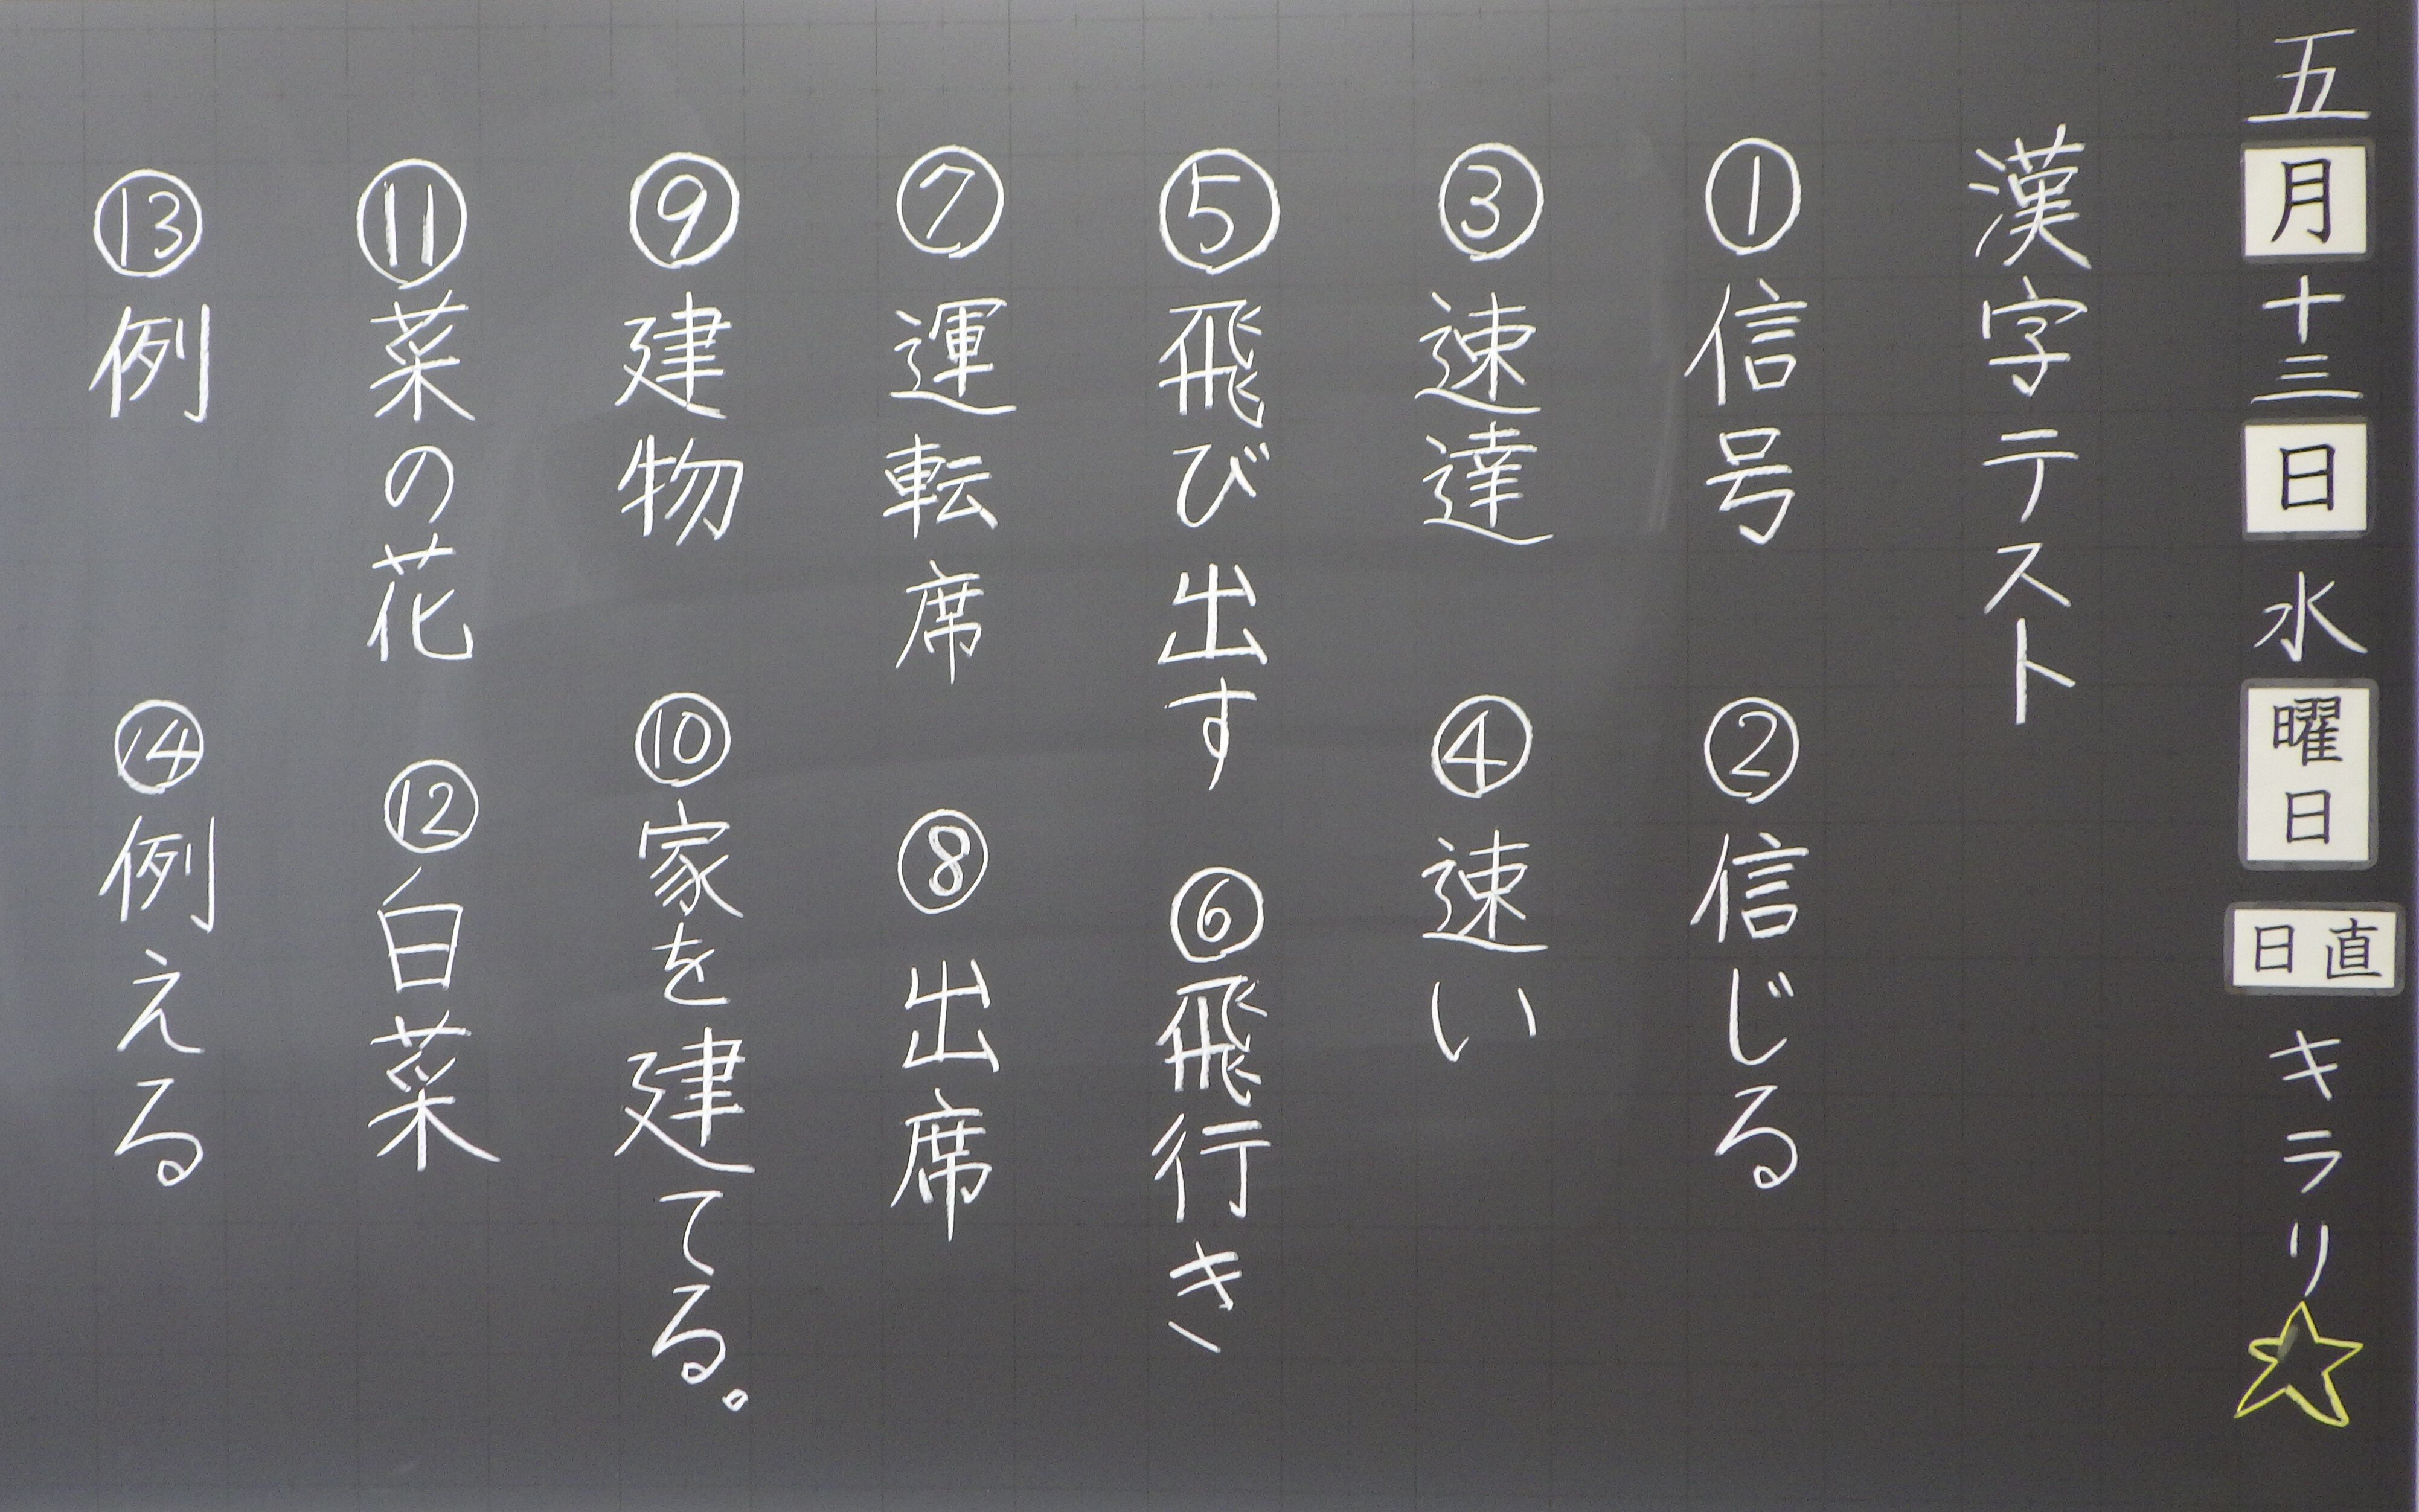 五月十三日水曜日 日直 キラリ☆
漢字テスト
①信号 ②信じる
③速達 ④速い
⑤飛び出す ⑥飛行き
⑦運転席 ⑧出席
⑨建物 ⑩家を建てる。
⑪菜の花 ⑫白菜
⑬例 ⑭例える